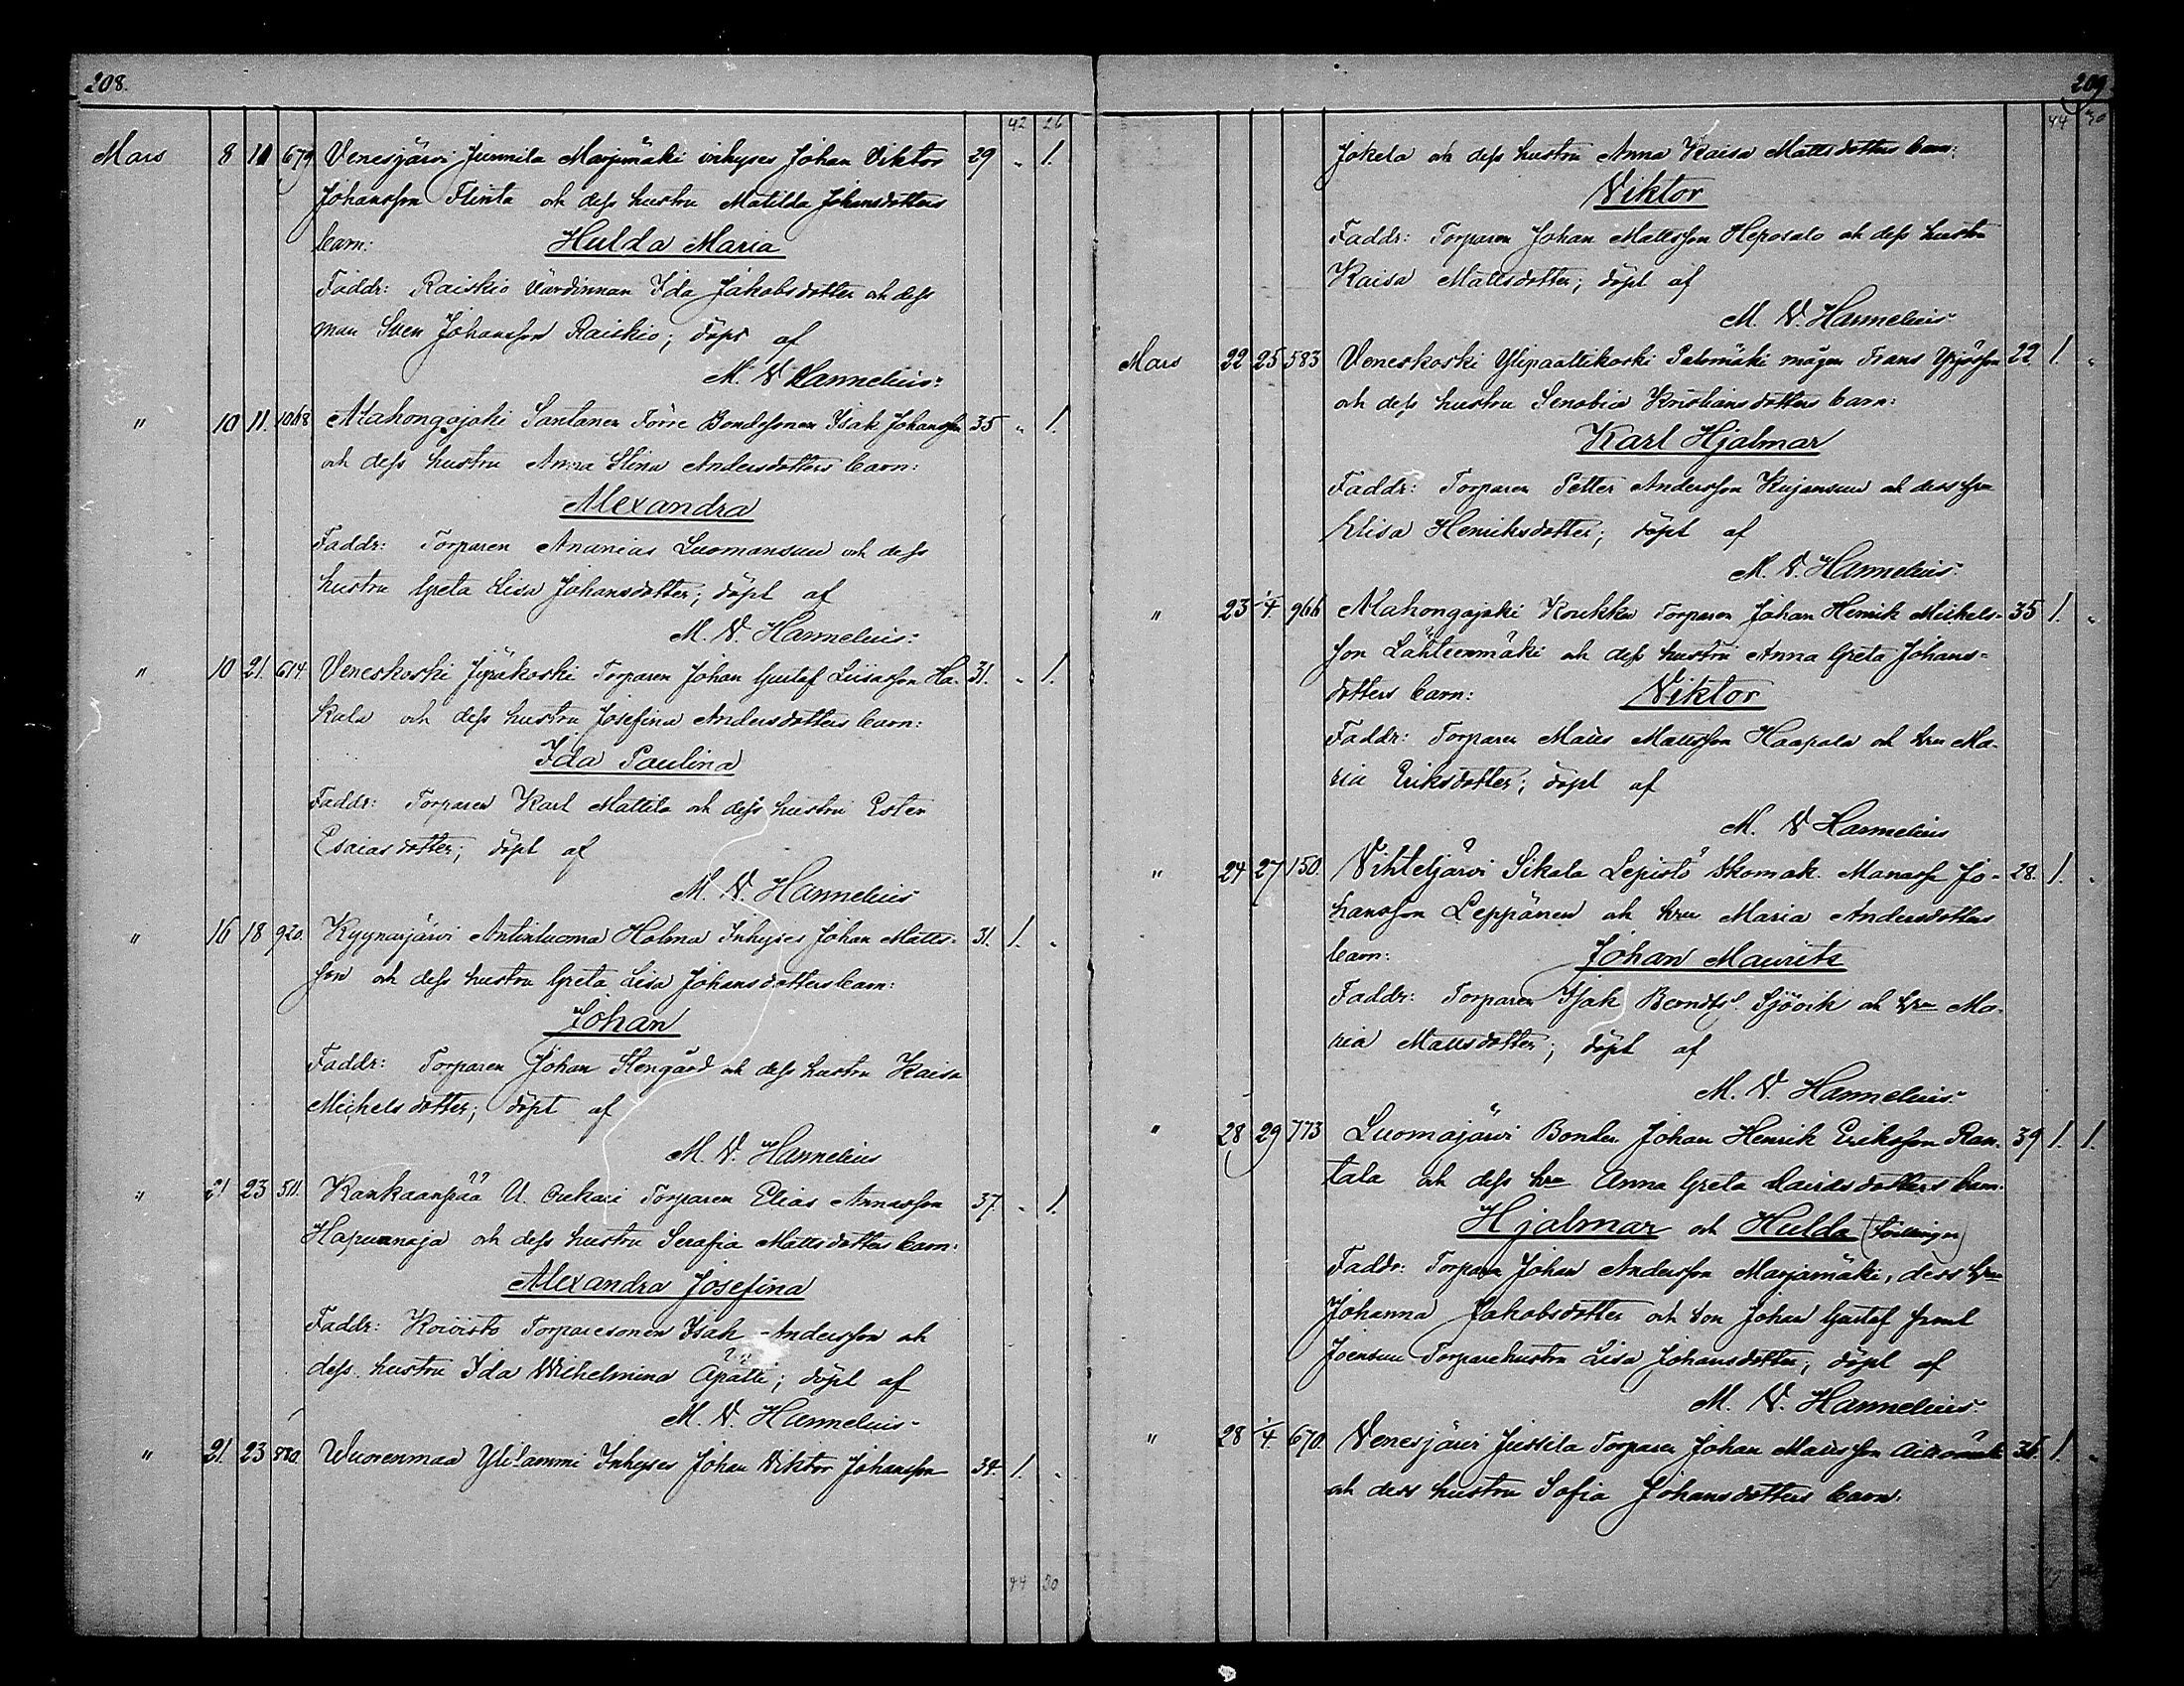 208.
42 26
Mars 8 10 679 Venesjärvi Junnila Marjumäki inhyses Johan Viktor 29 " 1.
Johansson Flinta och dess hustru Matilda Johansdotters
barn: Hulda Maria
Faddr: Raiskio värdinnan Ida Jakobsdotter och dess
man Sven Johansson Raiskio; döpt af
M. V. Hannelius.
" 10 11. 1068 Alahongajoki Santanen Förre Bondesonen Isak Johansson 35 " 1.
och dess hustru Anna Stina Andersdotters barn:
Alexandra
Faddr: Torparen Ananias Luomansuu och dess
hustru Greta Lisa Johansdotter; döpt af
M. V. Hannelius.
" 10 21. 614 Veneskoski Jyräkoski Torparen Johan Gustaf Liisasson Ha- 31. " 1.
kala och dess hustru Josefina Andersdotters barn:
Ida Paulina
Faddr: Torparen Karl Mattila och dess hustru Ester
Esaiasdotter; döpt af
M. V. Hannelius
" 16 18 920. Kyynärjärvi Antinluoma Holma Inhyses Johan Matts- 31. 1. "
son och dess hustru Greta Lisa Johansdotters barn:
Johan
Faddr: Torparen Johan Stengård och dess hustru Kaisa
Michelsdotter; döpt af
M. V. Hannelius
" 21 23 511. Kankaanpää U. Torparen Elias Annasson 37. " 1.
Hapuanoja och dess hustru Serafia Mattsdotters barn:
Alexandra Josefina
Faddr: Koivisto Torparesonen Isak Andersson och
dess hustru Ida Wilhelmina Apatti; döpt af
M. V. Hannelius
" 21. 23 880. Wuorenmaa Ylilammi Inhyses Johan Viktor Johansson 34. 1. "
44 30
209
44 30
Jokela och dess hustru Anna Kaisa Mattsdotters barn:
Viktor
Faddr: Torparen Johan Mattsson Heposalo och dess hustru
Kaisa Mattsdotter; döpt af
M. V. Hannelius
Mars 22 25 583 Veneskoski Ylipaattikoski Salomäki mågen Frans Yrjösson 22. 1. "
och dess hustru Senobia Kristiansdotters barn:
Karl Hjalmar
Faddr: Torparen Petter Andersson Kujansuu och dess hru
Elisa Henriksdotter; döpt af
M. V. Hannelius.
" 23 1/4. 966 Alahongajoki Koukku Torparen Johan Henrik Michels- 35 1. "
son Lähteenmäki och dess hustru Anna Greta Johans-
dotters barn: Viktor
Faddr: Torparen Matts Mattsson Haapala och hru Ma-
ria Eriksdotter; döpt af
M. V. Hannelius
" 24 27 150. Vihteljärvi Sikala Lepistö Skomak. Manasse Jo- 28. 1. "
hansson Leppänen och hru Maria Andersdotters
barn: Johan Maurits
Faddr: Torparen Isak Berndts. Sjövik och hru Ma-
ria Mattsdotter; döpt af
M. V. Hannelius.
" 28 29 773 Luomajärvi Bonden Johan Henrik Eriksson Ran- 39 1. 1.
tala och dess hru Anna Greta Davidsdotters barn:
Hjalmar och Hulda (Tvillingar)
Faddr: Torparen Johan Andersson Marjamäki, dess hru
Johanna Jakobsdotter och son Johan Gustaf samt
Joensuu Torparehustru Lisa Johansdotter; döpt af
M. V. Hannelius.
" 28 1/4. 670. Venesjärvi Jussila Torparen Johan Mattsson 36. 1. "
och dess hustru Sofia Johansdotters barn: